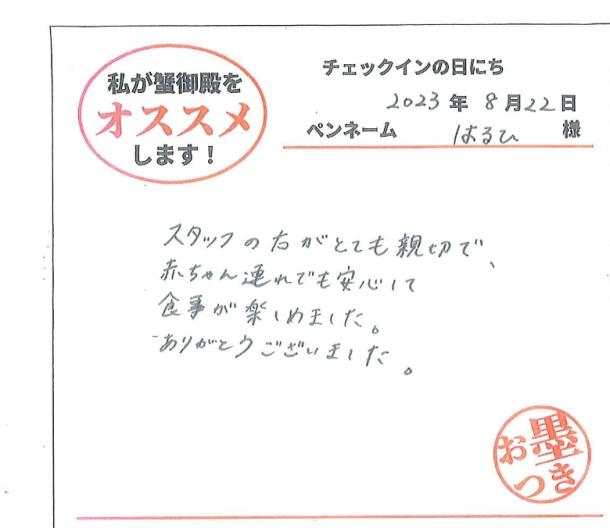 私が蟹御殿を
オススメ
します！
チェックインの日にち
2023年8月22日
ペンネーム はるひ 様
スタッフの方がとても親切で、
赤ちゃん連れでも安心して
食事が楽しめました。
ありがとうございました。
お墨
つき